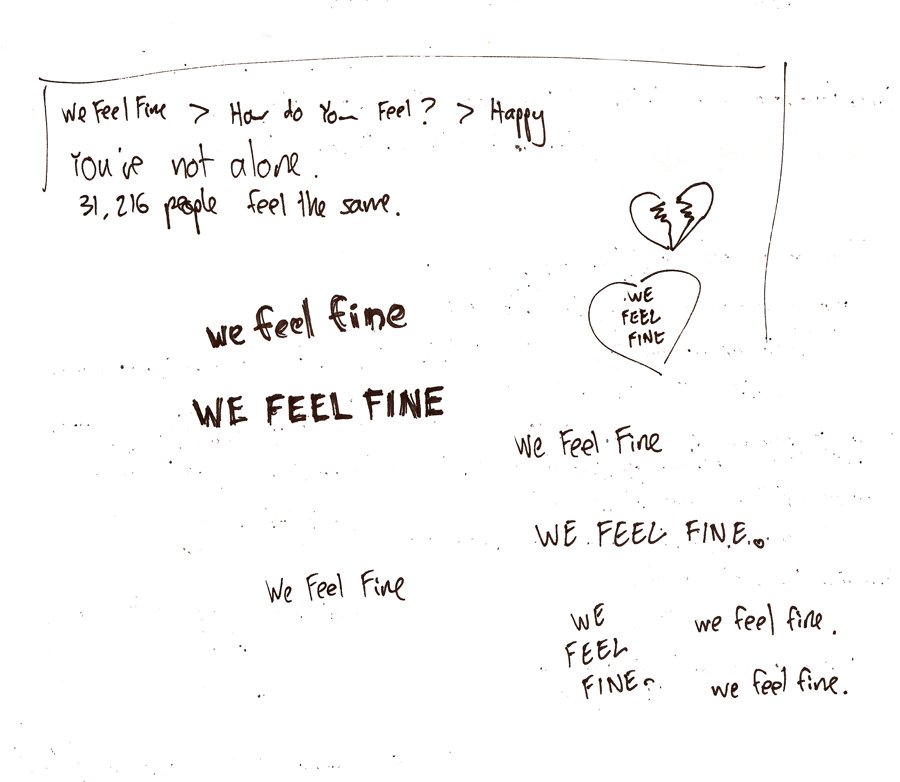 We Feel Fine > How do You Feel? > Happy
You're not alone.
31,216 people feel the same.
WE
FEEL
FINE
we feel fine
WE FEEL FINE
We Feel Fine
WE FEEL FINE.
We Feel Fine
WE
FEEL
FINE.
we feel fine.
we feel fine.